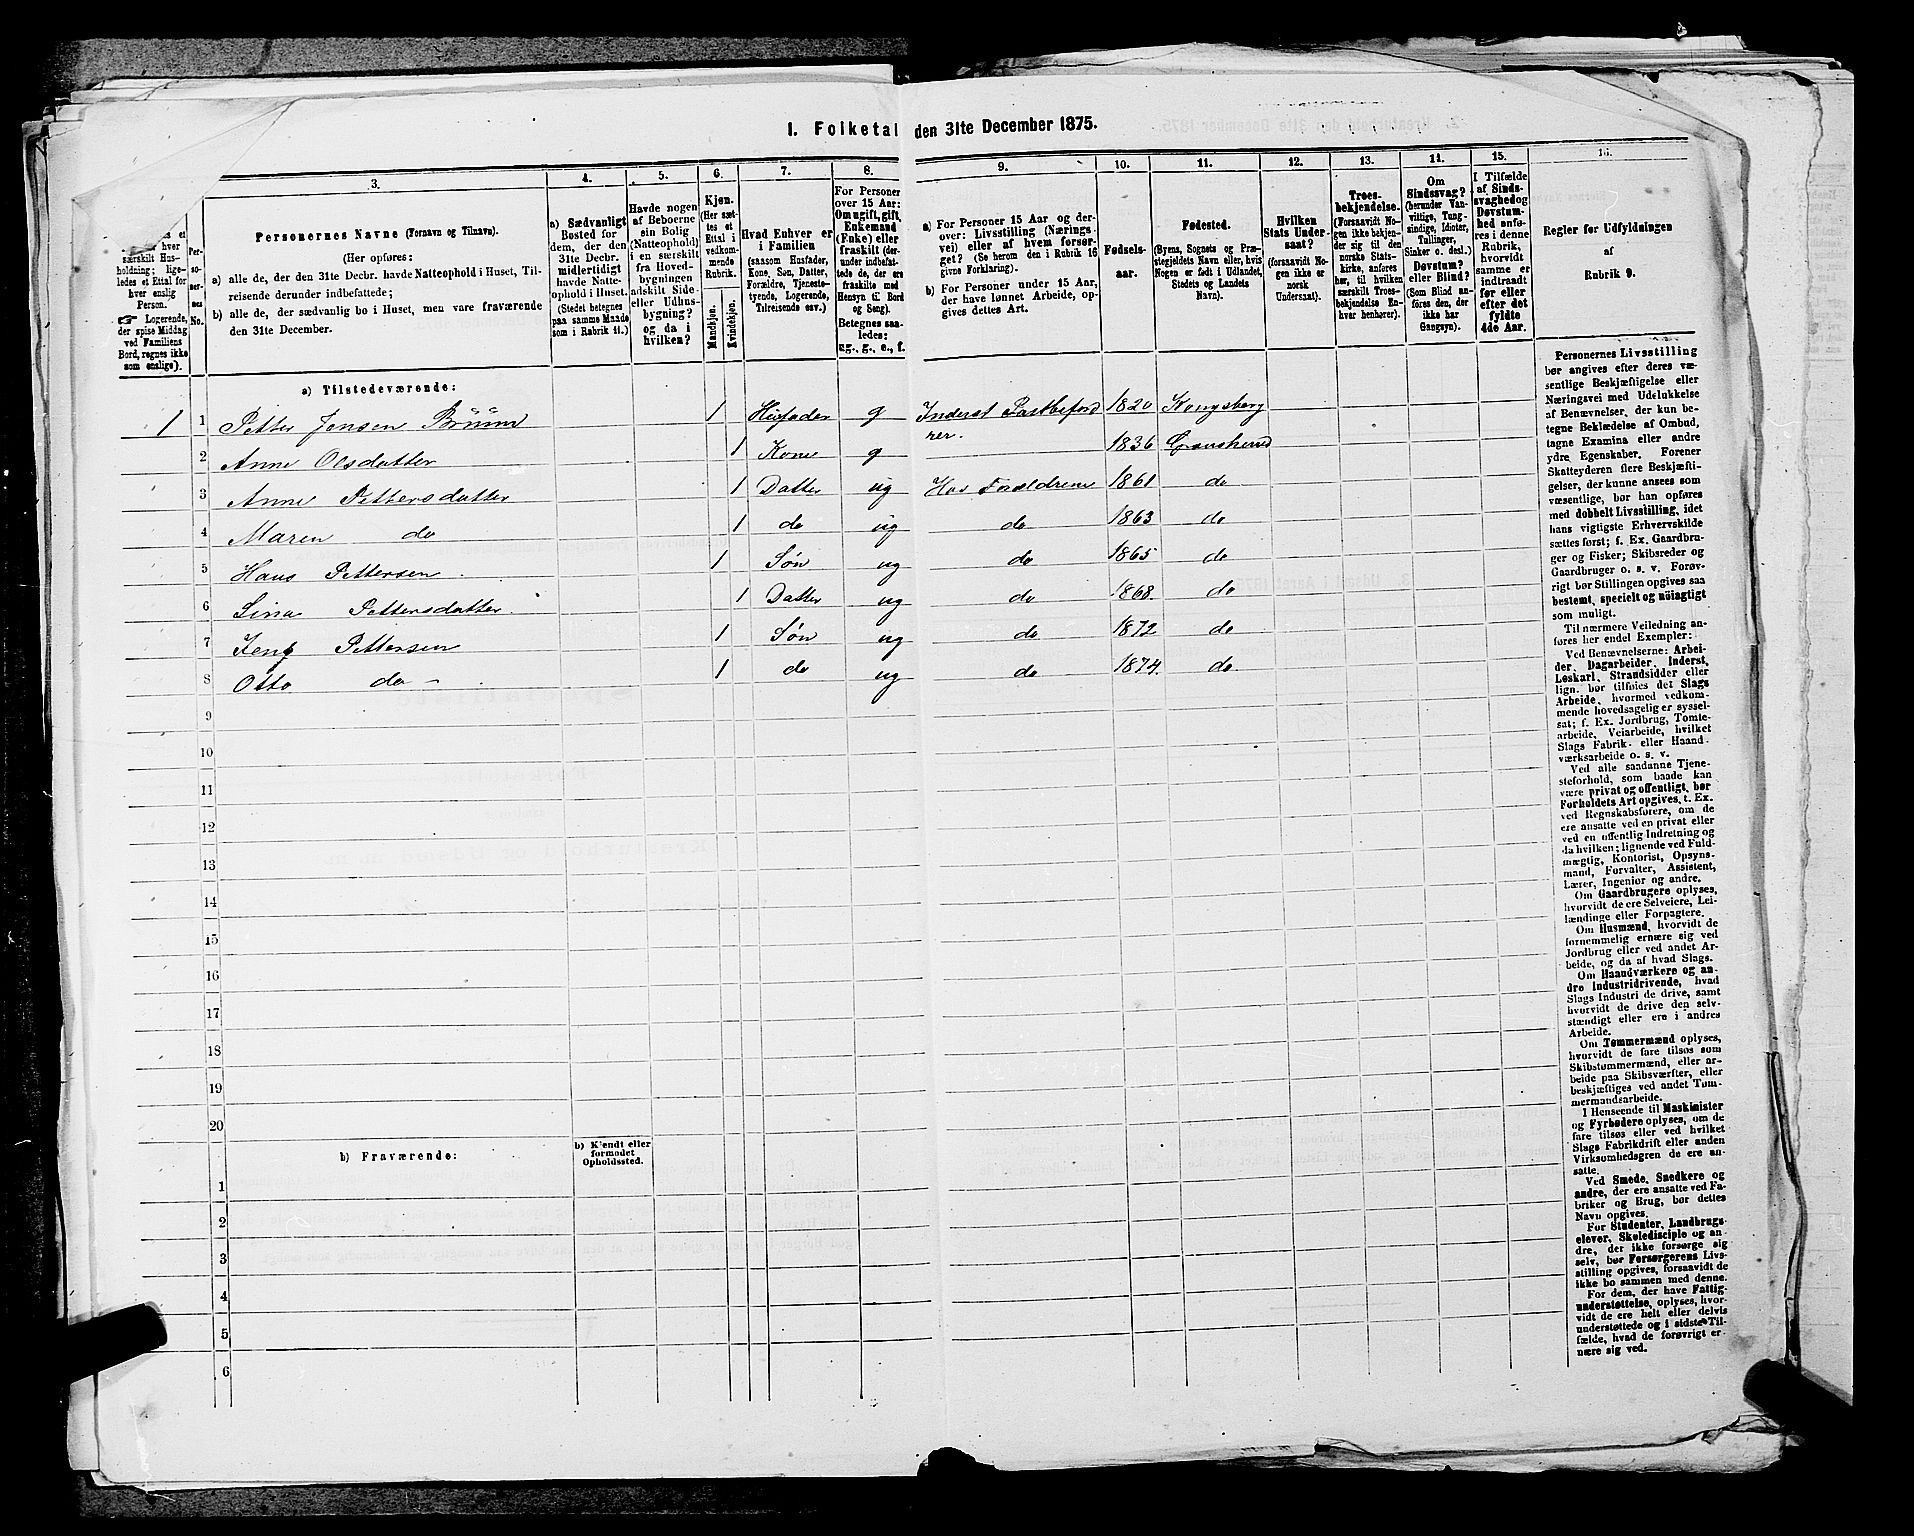 1. Folketal den 31te December 1875.
3. 4. 5. 6. 7. 8. 9. 10. 11. 12. 13. 14. 15. 16.
særskilt Hus-
holdning; lige-
ledes et Ettal for
hver enslig
Person.
☞ Logerende,
der spise Middag
ved Familiens
Bord, regnes ikke
som enslige).
Per-
so-
ner-
nes
No.
Personernes Navne (Fornavn og Tilnavn).
(Her opføres:
a) alle de, der den 31te Decbr. havde Natteophold i Huset, Til-
reisende derunder indbefattede;
b) alle de, der sædvanlig bo i Huset, men vare fraværende
den 31te December.
a) Sædvanligt
Bosted for
dem, der den
31te Decbr.
midlertidigt
havde Natte-
ophold i Huset.
(Stedet betegnes
paa samme Maade
som i Rubrik 11.)
Havde nogen
af Beboerne
sin Bolig
(Natteophold)
i en særskilt
fra Hoved-
bygningen
adskilt Side-
eller Udhus-
bygning?
og da i
hvilken?
Kjøn.
(Her sæt-
tes et
Ettal i
vedkom-
mende
Rubrik.
Mandkjøn.
Kvindekjøn.
Hvad Enhver er
i Familien
(saasom Husfader,
Kone, Søn, Datter,
Forældre, Tjeneste-
tyende, Logerende,
Tilreisende osv.)
For Personer
over 15 Aar:
Om ugift, gift,
Enkemand
(Enke) eller
fraskilt (der-
under indbefat-
tede de, der ere
fraskilte med
Hensyn til Bord
og Seng).
Betegnes saa-
ledes:
ug., g., e., f.
a) For Personer 15 Aar og der-
over: Livsstilling (Nærings-
vei) eller af hvem forsør-
get? (Se herom den i Rubrik 16
givne Forklaring).
b) For Personer under 15 Aar,
der have lønnet Arbeide, op-
gives dettes Art.
Fødsels-
aar.
Fødested.
(Byens, Sognets og Præ-
stegjeldets Navn eller, hvis
Nogen er født i Udlandet,
Stedets og Landets
Navn).
Hvilken
Stats Under-
saat?
(forsaavidt No-
gen ikke er
norsk
Undersaat).
Troes-
bekjendelse.
(Forsaavidt No-
gen ikke bekjen-
der sig til den
norske Stats-
kirke, anføres
her, til hvilken
særskilt Troes-
bekjendelse En-
hver henhører).
Om
Sindssvag?
(herunder Van-
vittige, Tung-
sindige, Idioter,
Tullinger,
Sinker o. desl.)
Døvstum?
eller Blind?
(Som Blind an-
føres den, der
ikke har
Gangsyn).
I Tilfælde
af Sinds-
svaghed og
Døvstum-
hed anfø-
res i denne
Rubrik,
hvorvidt
samme er
indtraadt
før eller
efter det
fyldte
4de Aar.
Regler for Udfyldningen
af
Rubrik 9.
a) Tilstedeværende:
1 1 Petter Jensen 1 Husfader g Inderst 1820 Kongsberg
2 Anne Olsdatter 1 Kone g 1836
3 Anne Pettersdatter 1 Datter ug Hos Forældrene 1861 do
4 Maren do 1 do ug do 1863 do
5 Hans Pettersen 1 Søn ug do 1865 do
6 Lina Pettersdatter. 1 Datter ug do 1868. do
7 Jens Pettersen 1 Søn ug do 1872 do
8 Otto do - 1 do ug do 1874. do
9
10
11
12
13
14
15
16
17
18
19
20
b) Fraværende:
b) Kjendt eller
formodet
Opholdssted.
1
2
3
4
5
6
Personernes Livsstilling
bør angives efter deres væ-
sentlige Beskjæftigelse eller
Næringsvei med Udelukkelse
af Benævnelser, der kun be-
tegne Beklædelse af Ombud,
tagne Examina eller andre
ydre Egenskaber. Forener
Skatteyderen flere Beskjæfti-
gelser, der kunne ansees som
væsentlige, bør han opføres
med dobbelt Livsstilling, idet
hans vigtigste Erhvervskilde
sættes først; f. Ex. Gaardbru-
ger og Fisker; Skibsreder og
Gaardbruger o. s. v. Forøv-
rigt bør Stillingen opgives saa
bestemt, specielt og nöiagtigt
som muligt.
Til nærmere Veiledning an-
føres her endel Exempler:
Ved Benævnelserne: Arbei-
der, Dagarbeider, Inderst,
Løskarl, Strandsidder eller
lign. bør tilføies det Slags
Arbeide, hvormed vedkom-
mende hovedsagelig er syssel-
sat; f. Ex. Jordbrug, Tomte-
arbeide, Veiarbeide, hvilket
Slags Fabrik- eller Haand-
værksarbeide o. s. v.
Ved alle saadanne Tjene-
steforhold, som baade kan
være privat og offentligt, bør
Forholdets Art opgives, t. Ex.
ved Regnskabsførere, om de
ere ansatte ved en privat eller
ved en offentlig Indretning og
da hvilken; lignende ved Fuld-
mægtig, Kontorist, Opsyns-
mand, Forvalter, Assistent,
Lærer, Ingeniør og andre.
Om Gaardbrugere oplyses,
hvorvidt de ere Selveiere, Lei-
lændinge eller Forpagtere.
Om Husmænd, hvorvidt de
fornemmelig ernære sig ved
Jordbrug eller ved andet Ar-
beide, og da af hvad Slags.
Om Haandværkere og an-
dre Industridrivende, hvad
Slags Industri de drive, samt
hvorvidt de drive den selv-
stændigt eller ere i andres
Arbeide.
Om Tømmermænd oplyses,
hvorvidt de fare tilsøs som
Skibstømmermænd, eller ar-
beide paa Skibsværfter, eller
beskjæftiges ved andet Tøm-
mermandsarbeide.
I Henseende til Maskinister
og Fyrbødere oplyses, om de
fare tilsøs eller ved hvilket
Slags Fabrikdrift eller anden
Virksomhedsgren de ere an-
satte.
Ved Smede, Snedkere og
andre, der ere ansatte ved Fa-
briker og Brug, bør dettes
Navn opgives.
For Studenter, Landbrugs-
elever, Skoledisciple og an-
dre, der ikke forsørge sig
selv, bør Forsørgerens Livs-
stilling opgives, forsaavidt de
ikke bo sammen med denne.
For dem, der have Fattig-
understøttelse, oplyses, hvor-
vidt de ere helt eller delvis
understøttede og i sidste Til-
fælde, hvad de forøvrigt er-
nære sig ved.